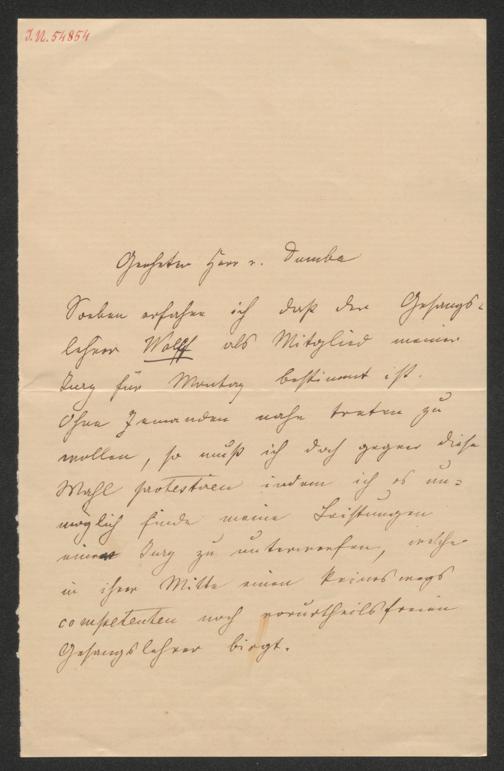 I.N. 54854
Geehrter Herr v. Dumba
Soeben erfahre ich daß der Gesangs-
lehrer Wolff als Mitglied meiner
Jury für Montag bestimmt ist.
Ohne Jemanden nahe treten zu
wollen, so muß ich doch gegen diese
Wahl protestiren indem ich es un=
möglich finde meine Leistungen
einer Jury zu unterwerfen, welche
in ihrer Mitte einen keineswegs
competenten noch vorurtheilsfreien
Gesangslehrer birgt.